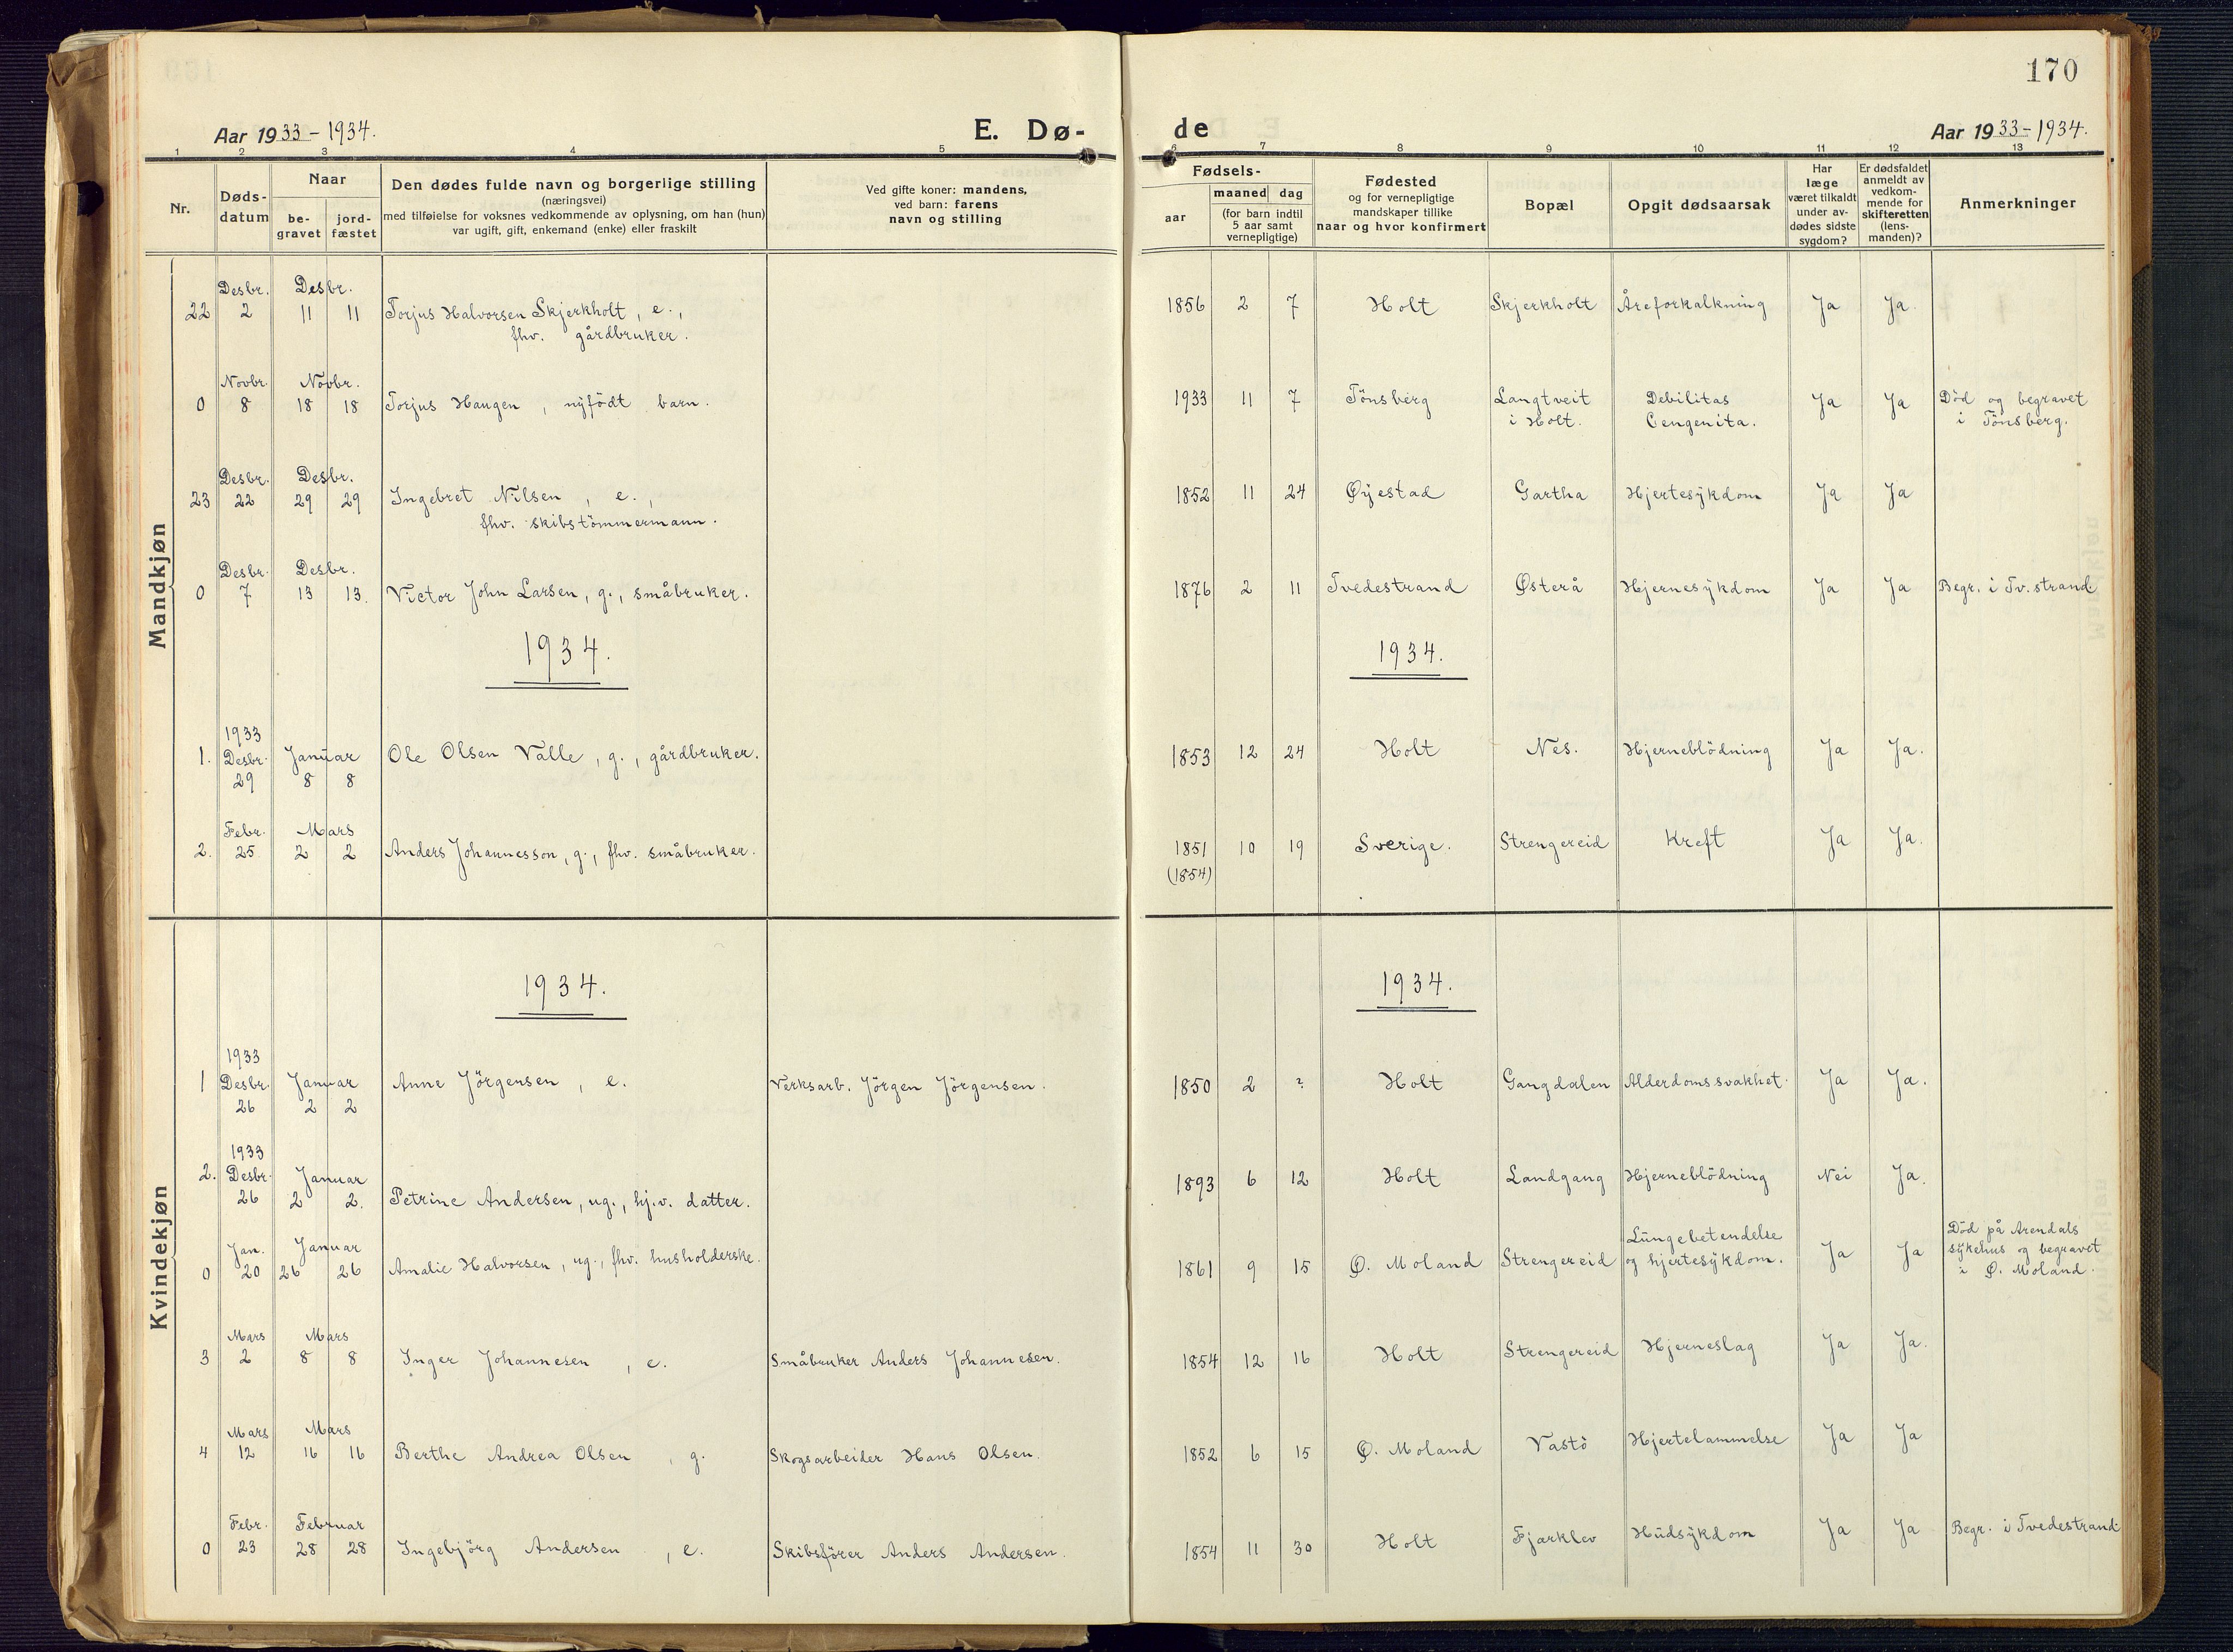 170
Aar 1933-1934. E. Dø- de Aar 1933-1934.
1 2 3 4 5 6 7 8 9 10 11 12 13
Nr.
Døds-
datum
Naar
be-
gravet
jord-
fæstet
Den dødes fulde navn og borgerlige stilling
(næringsvei)
med tilføielse for voksnes vedkommende av oplysning, om han (hun)
var ugift, gift, enkemand (enke) eller fraskilt
Ved gifte koner: mandens,
ved barn: farens
navn og stilling
Fødsels-
aar
maaned dag
(for barn indtil
5 aar samt
vernepligtige)
Fødested
og for vernepligtige
mandskaper tillike
naar og hvor konfirmert
Bopæl
Opgit dødsaarsak
Har
læge
været tilkaldt
under av-
dødes sidste
sygdom?
Er dødsfaldet
anmeldt av
vedkom-
mende for
skifteretten
(lens-
manden)?
Anmerkninger
Mandkjøn
Desbr. Desbr.
22 2 11 11 Torjus Halvorsen Skjerkholt, e., 1856 2 7 Holt Skjerkholt Åreforkalkning Ja Ja.
fhv. gårdbruker.
Novbr. Novbr.
0 8 18 18 Torjus Haugen, nyfödt barn. 1933 11 7 Tönsberg Langtveit Debilitas Ja Ja Död og begravet
i Holt. Cengenita. i Tönsberg.
Desbr. Desbr.
23 22 29 29 Ingebret Nilsen, e., 1852 11 24 Øyestad Gartha Hjertesykdom Ja Ja
fhv. skibstömmermann.
Desbr. Desbr.
0 7 13 13. Victor John Larsen, g., småbruker. 1876 2 11 Tvedestrand Østerå Hjernesykdom Ja Ja Begr. i Tv.strand
1934. 1934.
1933
1. Desbr. Januar Ole Olsen Valle, g., gårdbruker. 1853 12 24 Holt Nes. Hjerneblödning Ja Ja.
29 8 8
Febr. Mars
2. 25 2 2 Anders Johannesson, g., fhv. småbruker. 1851 10 19 Sverige. Strengereid Kreft Ja Ja.
(1854)
Kvindekjøn
1934. 1934.
1933
1 Desbr. Januar Anne Jörgensen, e. Verksarb. Jörgen Jörgensen. 1850 2 ? Holt Gangdalen Alderdomssvakhet. Ja Ja.
26 2 2
1933
2. Desbr. Januar
26 2 2. Petrine Andersen, ug., hj.v. datter. 1893 6 12 Holt Landgang Hjerneblödning Nei Ja.
Jan. Januar Lungebetendelse Död på Arendals
0 20 26 26 Amalie Halvorsen, ug., fhv. husholderske. 1861 9 15 Ø. Moland Strengereid og hjertesykdom. Ja Ja sykehus og begravet
i Ø. Moland.
Mars Mars
3 2 8 8 Inger Johannesen, e. Småbruker Anders Johannesen. 1854 12 16 Holt Strengereid Hjerneslag Ja Ja.
Mars Mars
4 12 16 16 Berthe Andrea Olsen, g. Skogsarbeider Hans Olsen. 1852 6 15 Ø. Moland Vastö Hjertelammelse Ja Ja
Febr. Februar
0 23 28 28 Ingebjörg Andersen, e. Skibsförer Anders Andersen. 1854 11 30 Holt Fjarklev Hudsykdom Ja Ja Begr. i Tvedestrand